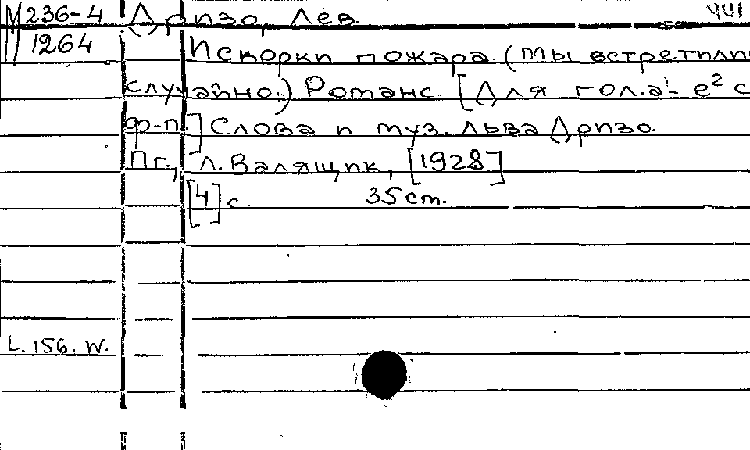 М 236-4 Дризо, Лев. 441
1264 Искорки пожара (Мы встретили
случайно.) Романс [Для гол. a¹- e² с
ф-п.] Слова и муз. Льва Дризо.
Пг., Л. Валящик, [1928]
[4] с 35 ст.
L. 156. W.